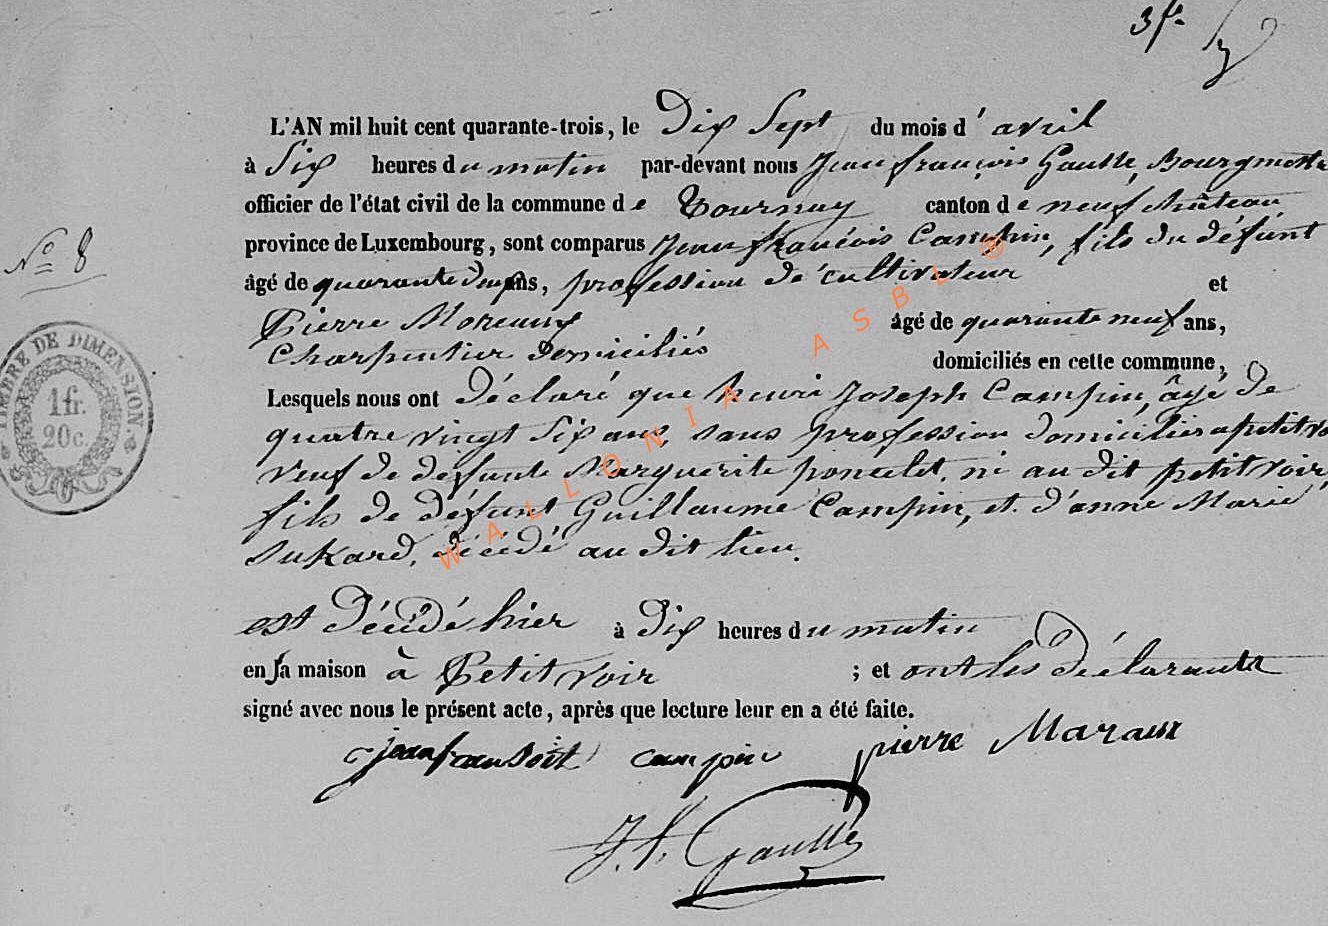 3f.
L'AN mil huit cent quarante-trois, le Dix Sept du mois d'avril
à Six heures du matin par-devant nous Jean françois Gaulle, Bourgmestre
officier de l'état civil de la commune de Tournay canton de neufchâteau
N° 8
province de Luxembourg, sont comparus Jean François Campin, fils du défunt
âgé de quarante ans, profession de cultivateur et
Pierre Moreaux âgé de quarante neuf ans,
Charpentier domiciliés domiciliés en cette commune,
Lesquels nous ont déclaré que henri Joseph Campin, âgé de
quatre vingt Six ans, sans profession domicilier a petitvo
veuf de défunte Marguerite poncelet, né au dit petitvoir,
fils de défunt Guillaume Campin, et d'anne Marie
Sukard, décédé au dit lieu.
est Décédé hier à Dix heures du matin
en sa maison à Petitvoir ; et ont les Déclarants
signé avec nous le présent acte, après que lecture leur en a été faite.
jean fransoit campin pierre Maraux
J. f. Gaulle
TIMBRE DE DIMENSION
1 fr.
20 c.
WALLONIA ASBL ®